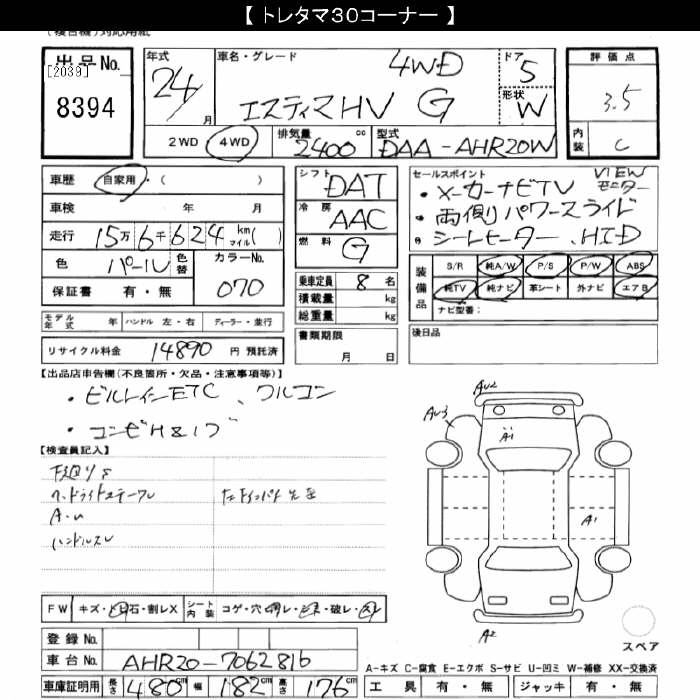 【 トレタマ30コーナー 】
出品No. [2039] 8394
年式 24 月
車名・グレード 4WD エスティマHV G
ドア 5
形状 W
評価点 3.5
内装 C
2WD 4WD 排気量 2400 cc 型式 DAA-AHR20W
車歴 自家用・( )
車検 年 月
走行 15万6千624 km マイル( )
色 パール 色替 カラーNo. 070
保証書 有・無
シフト DAT
冷房 AAC
燃料 G
乗車定員 8 名
積載量 kg
総重量 kg
セールスポイント VIEWモニター
・メーカーナビTV
・両側パワースライド
・シートヒーター、HID
装備品 S/R 純A/W P/S P/W ABS
純TV 純ナビ 革シート 外ナビ エアB
ナビ型番:
モデル年式 年 ハンドル 左・右 ディーラー・並行
書類期限 月 日
後日品
リサイクル料金 14890 円 預託済
【出品店申告欄(不良箇所・欠品・注意事項等)】
・ビルトインETC、クルコン
・コンビH&ノブ
【検査員記入】
下廻りS
A・U
ハンドルスレ
AU2
AU3
A1
A1
A2
FW キズ・トビ石・割レX シート内装 コゲ・穴・
登録No.
車台No. AHR20-7062816
スペア
A-キズ C-腐食 E-エクボ S-サビ U-凹ミ W-補修 XX-交換済
車庫証明用 長さ 480 cm 幅 182 cm 高さ 176 cm
工具 有・無 ジャッキ 有・無